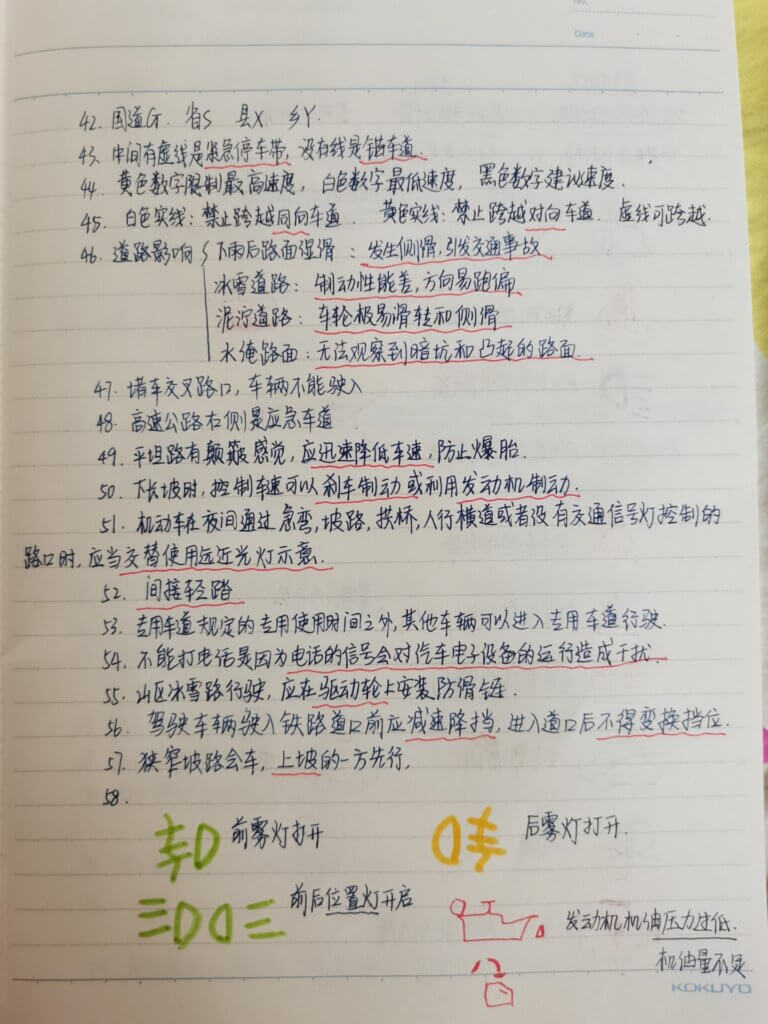 No.
Date
42. 国道G. 省S 县X 乡Y.
43. 中间有虚线是紧急停车带, 没有线是错车道.
44. 黄色数字限制最高速度, 白色数字最低速度, 黑色数字建议速度.
45. 白色实线: 禁止跨越同向车道. 黄色实线: 禁止跨越对向车道. 虚线可跨越.
46. 道路影响 下雨后路面湿滑: 发生侧滑, 引发交通事故
冰雪道路: 制动性能差, 方向易跑偏
泥泞道路: 车轮极易滑转和侧滑
水淹路面: 无法观察到暗坑和凸起的路面.
47. 堵车交叉路口, 车辆不能驶入
48. 高速公路右侧是应急车道.
49. 平坦路有颠簸感觉, 应迅速降低车速, 防止爆胎.
50. 下长坡时, 控制车速可以刹车制动或利用发动机制动.
51. 机动车在夜间通过急弯, 坡路, 拱桥, 人行横道或者没有交通信号灯控制的
路口时, 应当交替使用远近光灯示意.
52. 间接轻踏
53. 专用车道规定的专用使用时间之外, 其他车辆可以进入专用车道行驶.
54. 不能打电话是因为电话的信号会对汽车电子设备的运行造成干扰.
55. 山区冰雪路行驶, 应在驱动轮上安装防滑链.
56. 驾驶车辆驶入铁路道口前应减速降挡, 进入道口后不得变换挡位.
57. 狭窄坡路会车, 上坡的一方先行.
58.
前雾灯打开 后雾灯打开.
前后位置灯开启
发动机机油压力过低.
机油量不足
KOKUYO